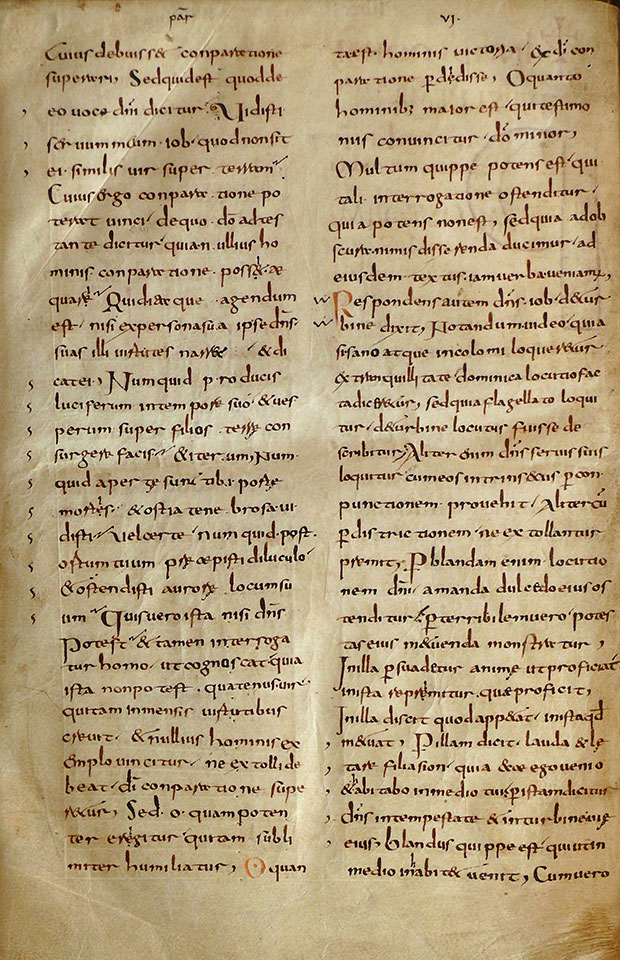 par̄
Cuius debuiss& conparatione
superari, Sed quid est quod de
eo voce dn̄i dicitur · Vidisti
servum meum · iob · quod non sit
ei · similis vir super · terram ·
Cuius ergo conparatione po
terat vinci · de quo · do̅ adtes
tante dicitur · quia nullius ho
minis · conparatione · possit ae
quari · Quid itaque · agendum
est · nisi ex persona sua ipse dn̄s ·
suas illi virtutes narret · & di
cat ei, Numquid producis
luciferum in tempore suo · & ves
perum super filios · terre con
surgere facis · & iterum · Num
quid aperte sunt tibi porte
mortis · & ostia tenebrosa · vi
disti · vel certe · numquid · post ·
ortum tuum precepisti diluculo ·
& ostendisti aurore locum su
um · Quis vero ista nisi dn̄s
Potest · & tamen interroga
tur homo · ut cognoscat · quia
ista non potest · quatenus · vir
qui tam inmensis virtutibus
crevit · & nullius hominis ex
emplo vincitur · ne extolli de
beat · di̅ conparatione supe
retur, Sed · o · quam poten
ter erigitur · qui tam subli
miter humiliatur, O quan
VI ·
ta est · hominis victoria · ex di̅ con
paratione p̄didisse, O quanto
hominib; maior est · qui testimo
niis convincitur · do̅ minor,
Multum quippe potens est · qui
tali · interrogatione ostenditur ·
quia potens non est, sed quia ad ob
scura nimis disserenda ducimur · ad
eiusdem · textus · iam verba veniam;,
Respondens autem dn̄s · iob · de tur
bine dixit, Notandum video · quia
si sano atque incolomi loqueretur ·
ex tranquillitate · dominica locutio fac
ta diceretur, sed quia flagellato loqui
tur · de turbine locutus fuisse de
scribitur, Aliter enim dn̄s servis suis
loquitur cum eos intrinsecus p̄ con
punctionem · provehit · Aliter cū
p̄ districtionem · ne extollantur
premit, P blandam enim · locutio
nem dn̄i · amanda dulcedo eius os
tenditur · p̄ terribilem vero · potes
tas eius metuenda monstratur,
In illa p̄suadetur anime ut proficiat
in ista reprimitur · quae proficit,
In illa discit quod appetat · in ista qd̄
metuat, P illam dicit · lauda & le
tare filia sion · quia ecce ego venio
& abitabo in medio tui, p̄ istam dicitur
dn̄s in tempestate & in turbine vie
eius, blandus quippe est · qui ut in
medio inhabitet venit, Cum vero